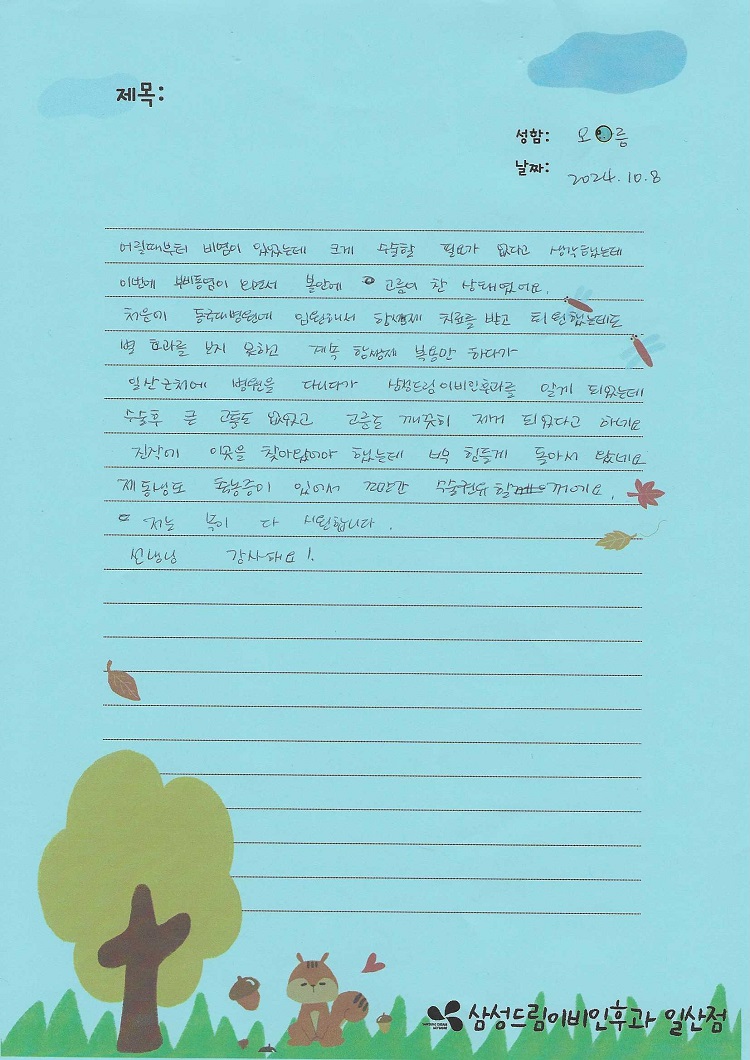 제목:
성함: 오 름
날짜: 2024. 10. 8
어릴때부터 비염이 있었는데 크게 수술할 필요가 없다고 생각했는데
이번에 부비동염이 와서 볼안에 고름이 찬 상태였어요.
처음에 동국대병원에 입원해서 항생제 치료를 받고 퇴원했는데도
별 효과를 보지 못하고 계속 항생제 복용만 하다가
일산근처에 병원을 다니다가 삼성드림이비인후과를 알게 되었는데
수술후 큰 고통도 없었고 고름도 깨끗히 제거 되었다고 하네요
진작에 이곳을 찾아왔어야 했는데 너무 힘들게 돌아서 왔네요
제 동생도 축농증이 있어서 수술권유 할 거에요.
저는 속이 다 시원합니다.
선생님 감사해요!
삼성드림이비인후과 일산점